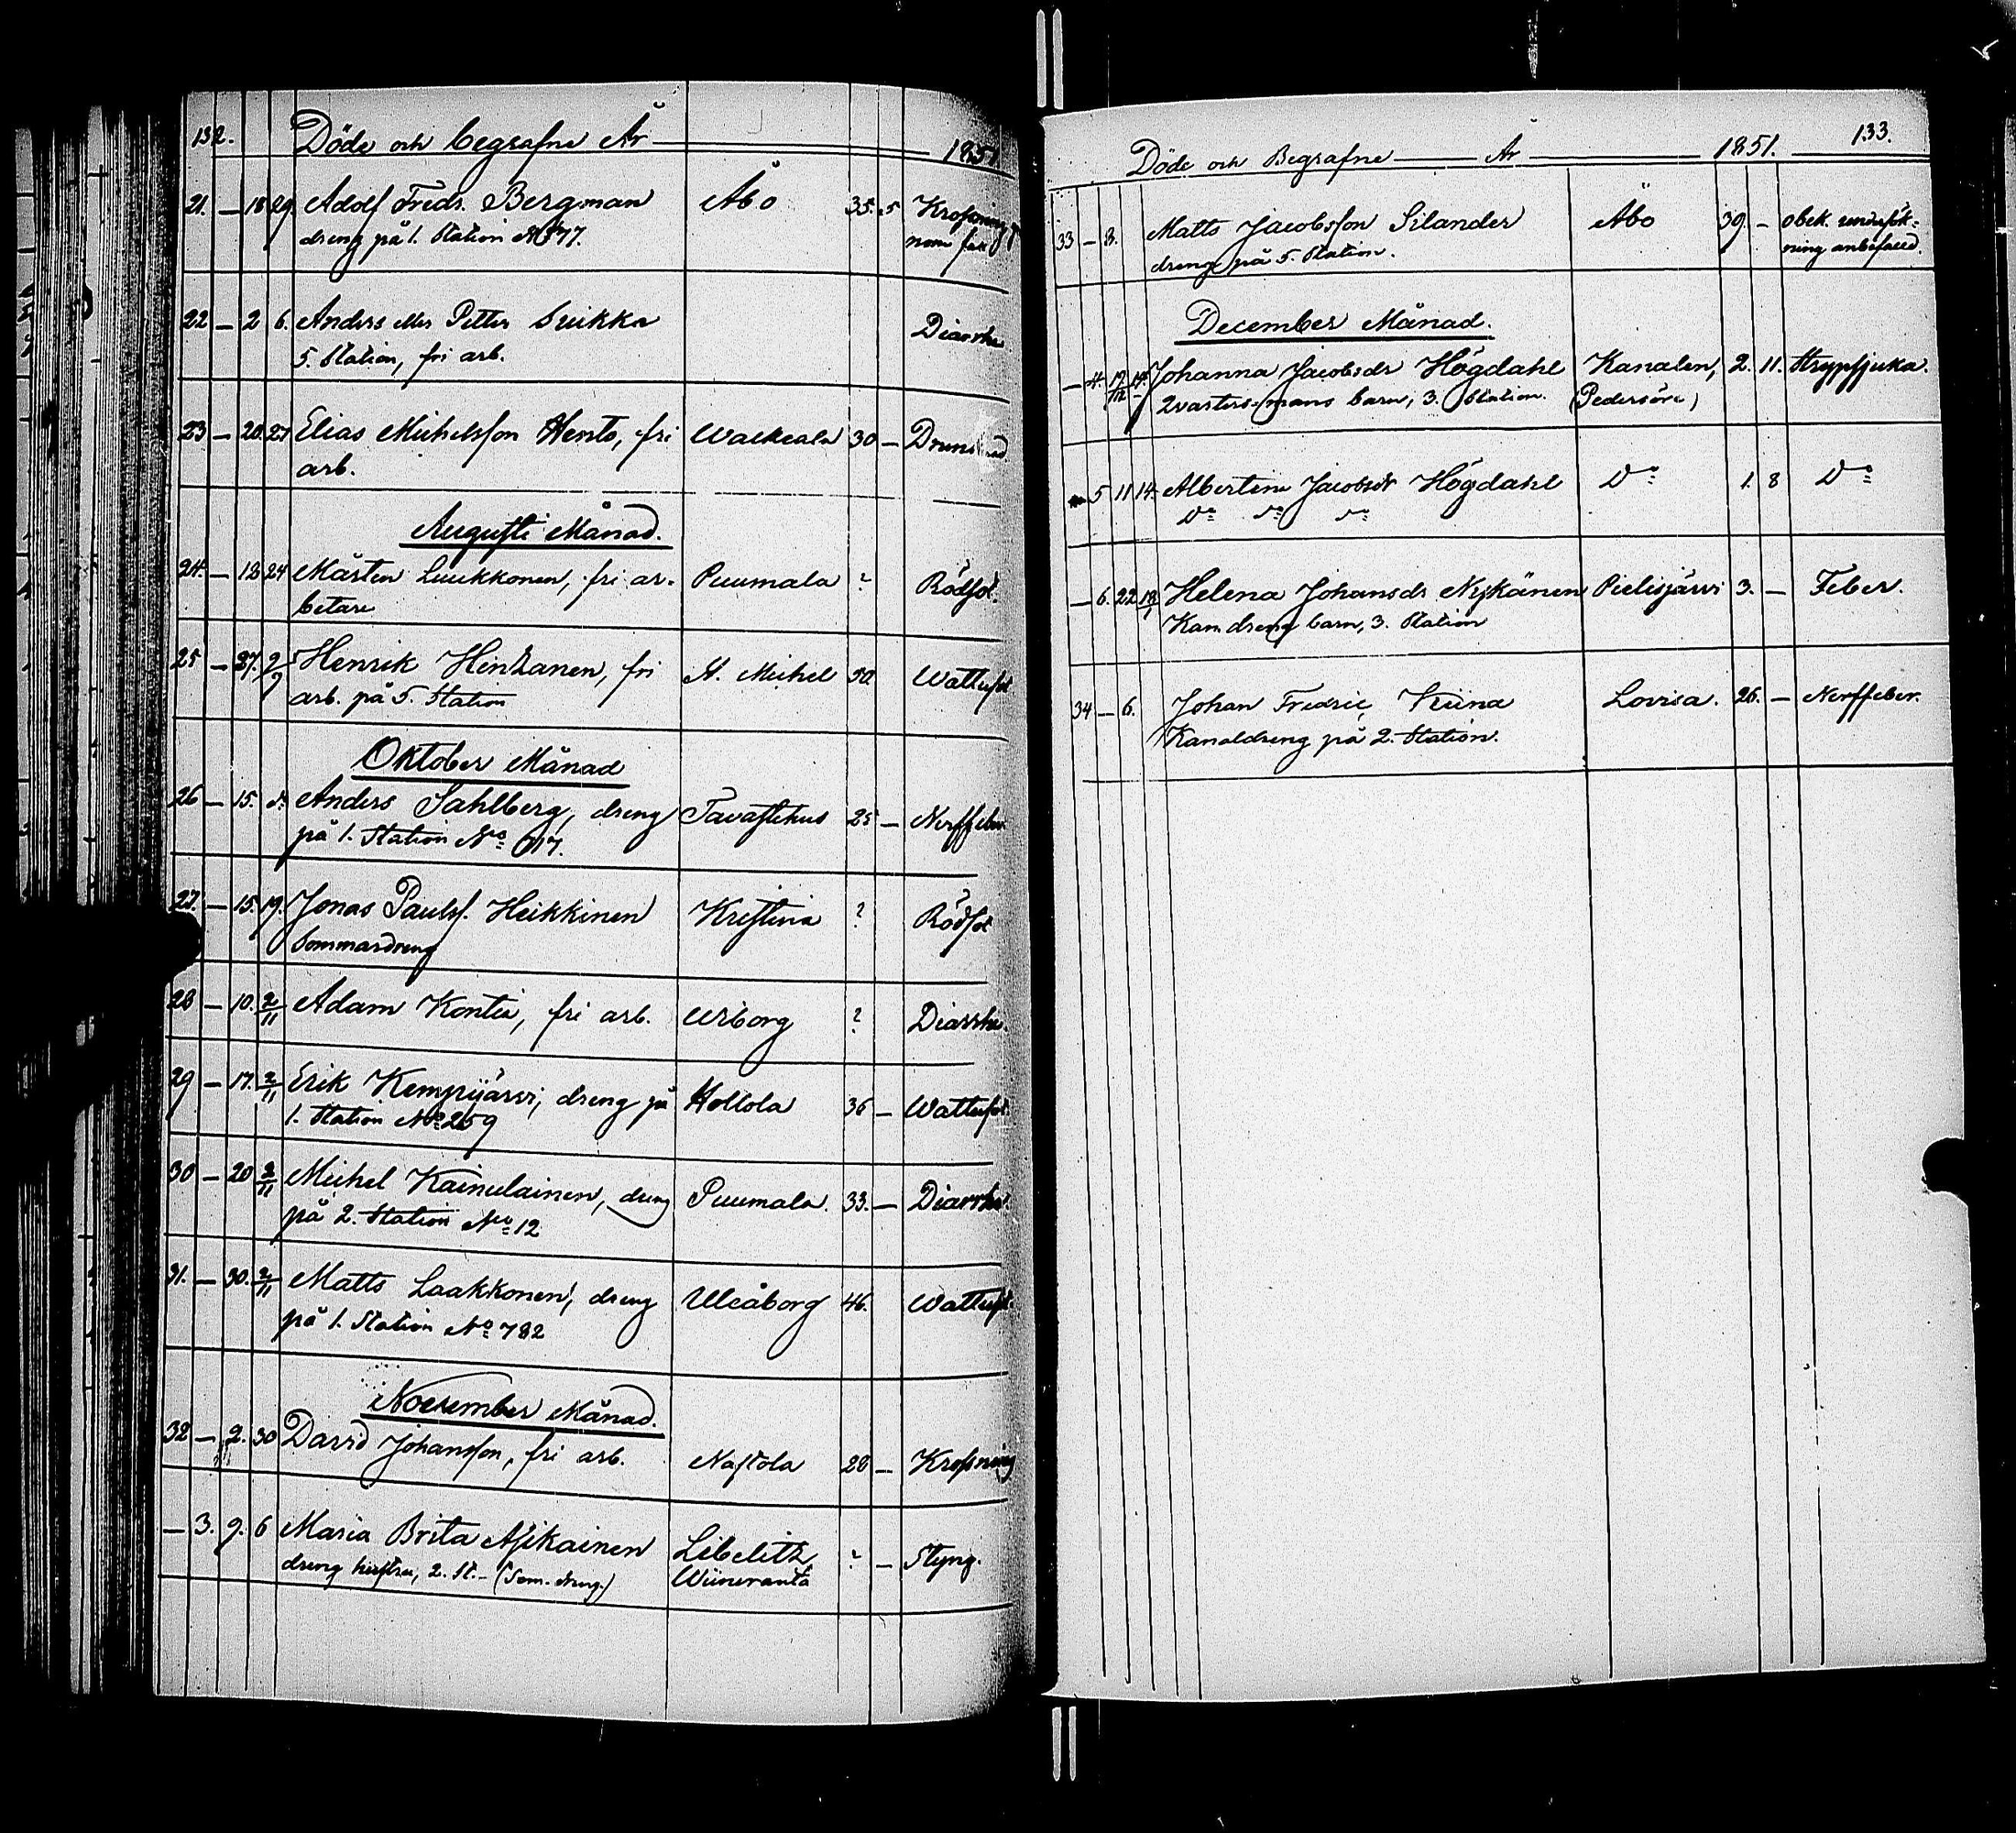 132. Döde och begrafne År 1851
21. — 18 29 Adolf Fredr. Bergman Åbo 35. 5 Krossning
dreng på 1. Station
22 — 2 6. Anders eller Petter Suikka Diarrhe
5. Station, fri arb.
23 — 20. 27 Elias Michelsson Hento, fri Walkeala 30 —
arb.
Augusti Månad.
24. — 18 24 Mårten Luukkonen, fri ar- Puumala ? Rödsot.
betare
25 — 27. Henrik Hinkanen, fri St. Michel 50. Wattusot
arb. på 5. Station
Oktober Månad
26 — 15. d:o Anders Sahlberg, dreng Tavastehus 25 — Nerffeber
på 1. Station No 617.
27. — 15. 19. Jonas Paulss. Heikkinen Kristina ? Rödsot
Sommardreng
28 — 10. 2/11 Adam Kontia, fri arb. Wiborg ? Diarrhe.
29 — 17. 2/11 Erik Kempijärvi, dreng på Hollola 36 — Wattusot.
1. Station No 259
30 — 20 2/11 Michel Kainulainen, dreng Puumala. 33. — Diarrhe.
på 2. Station No 12
31. — 30. 2/11 Matts Laakkonen, dreng Uleåborg 46. Wattusot.
på 1. Station No 782
November Månad.
32 — 2. 30 David Johansson, fri arb. Nastola 28 — Krossning
— 3. 9. 6 Maria Brita Asikainen Libelitz ? — Styng.
dreng hustru, 2. St. — (Som. dreng.) Wiinranta
Döde och Begrafne — År — 1851. 133.
33 — 8. Matts Jacobsson Silander Åbo 39. — obek. undersök-
dreng på 5. Station. ning anbefalld.
December Månad.
— 4. 12/12 14. Johanna Jacobsdr Högdahl Kanalen, 2. 11. Strypsjuka.
Qvartersmans barn, 3. Station. (Pedersöre)
— 5 11 14. Albertina Jacobsdr Högdahl Do 1. 8 Do
Do do do
— 6. 22 18/1 Helena Johansdr Nykänen Pielisjärvi 3. — Feber.
Kan. dreng barn, 3. Station
34 — 6. Johan Fredric Kiina Lovisa. 26. — Nerffeber.
Kanaldreng på 2. Station.